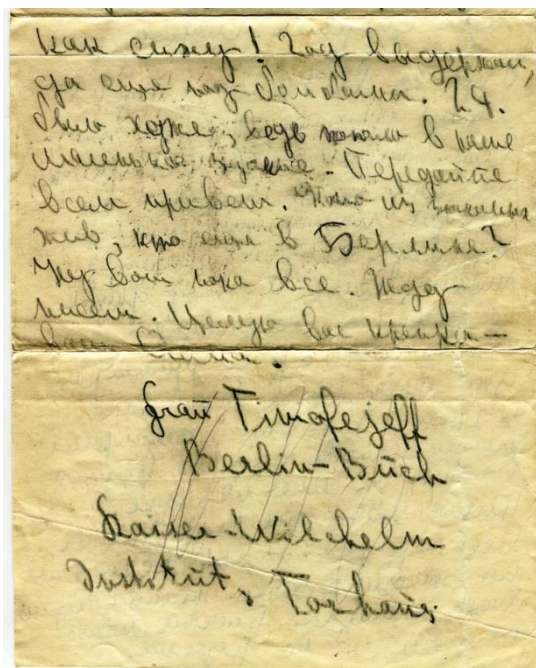 как сижу! Год выдержал,
да еще под бомбами. 24.
было хуже, ведь попали в наше
маленькое здание. Передайте
всем привет. Кто из знакомых
жив, кто еще в Берлине?
Ну вот пока все. Жду
писем. Целую вас крепко —
ваш
Frau Timofejeff
Berlin-Buch
Kaiser-Wilchelm
Institut, Torhaus